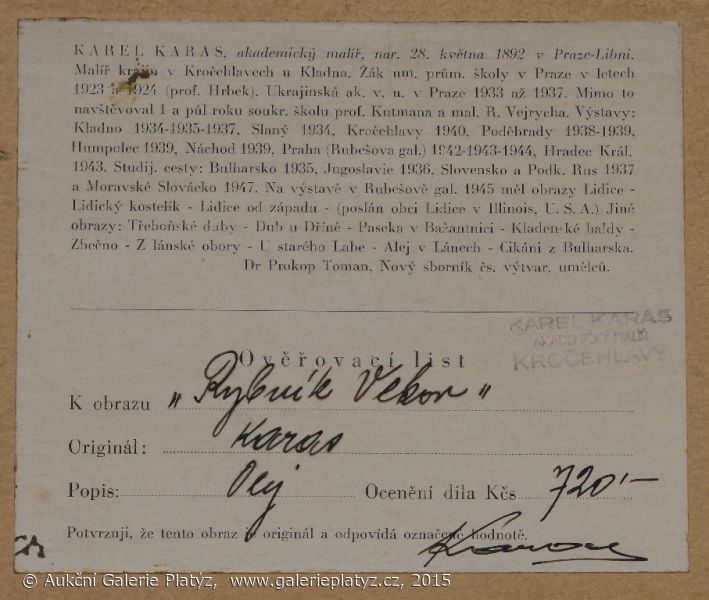 KAREL KARAS, akademický malíř, nar. 28. května 1892 v Praze-Libni.
Malíř krajin v Kročehlavech u Kladna. Žák um. prům. školy v Praze v letech
1923 a 1924 (prof. Hrbek). Ukrajinská ak. v. u. v Praze 1933 až 1937. Mimo to
navštěvoval 1 a půl roku soukr. školu prof. Kutmana a mal. R. Vejrycha. Výstavy:
Kladno 1934-1935-1937, Slaný 1934, Kročehlavy 1940, Poděbrady 1938-1939,
Humpolec 1939, Náchod 1939, Praha (Rubešova gal.) 1942-1943-1944, Hradec Král.
1943. Studij. cesty: Bulharsko 1935, Jugoslavie 1936, Slovensko a Podk. Rus 1937
a Moravské Slovácko 1947. Na výstavě v Rubešově gal. 1945 měl obrazy Lidice -
Lidický kostelík - Lidice od západu - (poslán obci Lidice v Illinois, U. S. A.) Jiné
obrazy: Třeboňské duby - Dub u Dříně - Paseka v Bažantnici - Kladenské haldy -
Zbečno - Z lánské obory - U starého Labe - Alej v Lánech - Cikáni z Bulharska.
Dr Prokop Toman, Nový sborník čs. výtvar. umělců.
KAREL KARAS
AKADEMICKÝ MALÍŘ
KROČEHLAVY
Ověřovací list
K obrazu „Rybník Vekor"
Originál: Karas
Popis: Olej Ocenění díla Kčs 720'-
Potvrzuji, že tento obraz je originál a odpovídá označené hodnotě.
Karas
© Aukční Galerie Platýz, www.galerieplatyz.cz, 2015